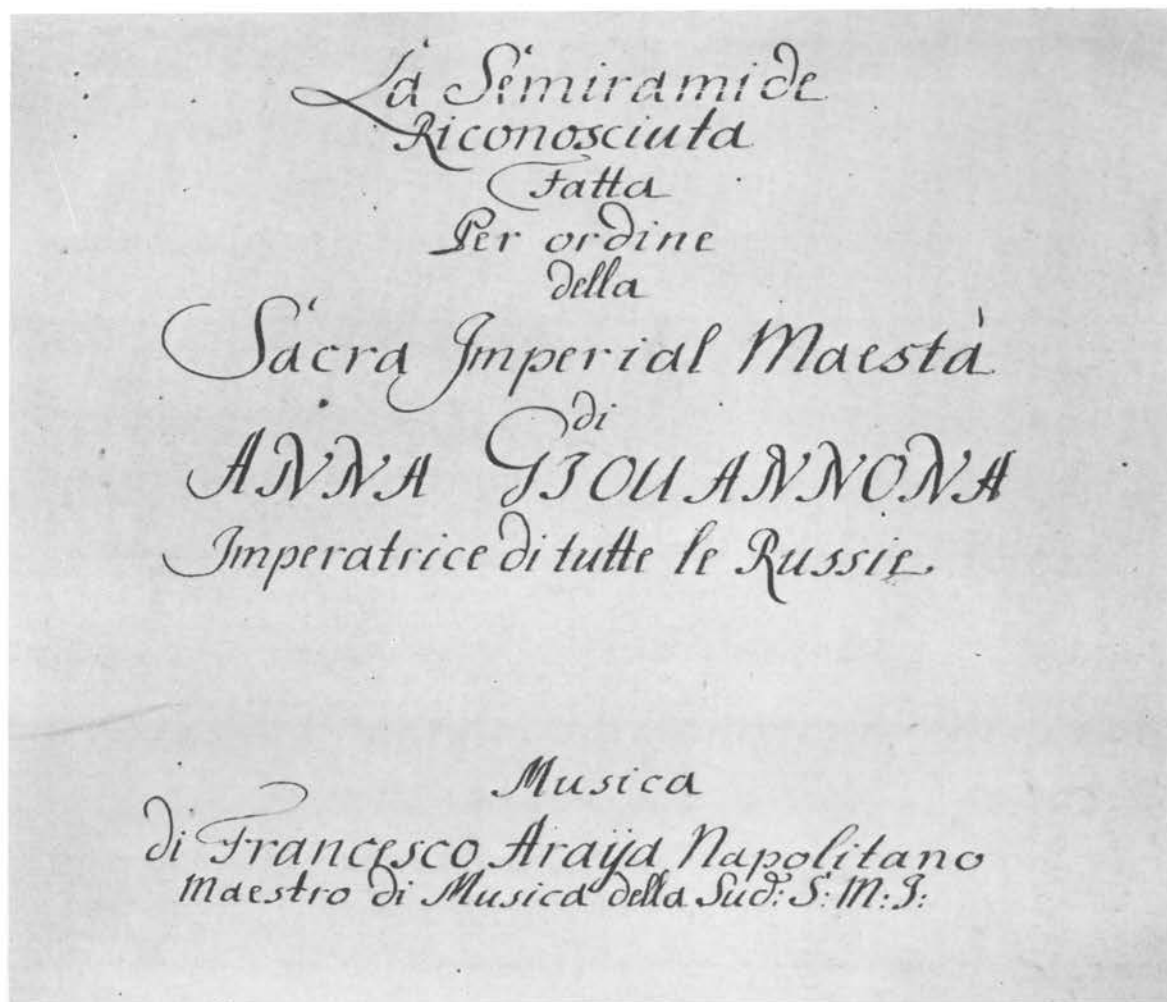 La Semiramide
Riconosciuta
Fatta
Per ordine
della
Sacra Imperial Maestà
di
ANNA GIOUANNONA
Imperatrice di tutte le Russie
Musica
di Francesco Araija Napolitano
Maestro di Musica della Sud: S: M: I: